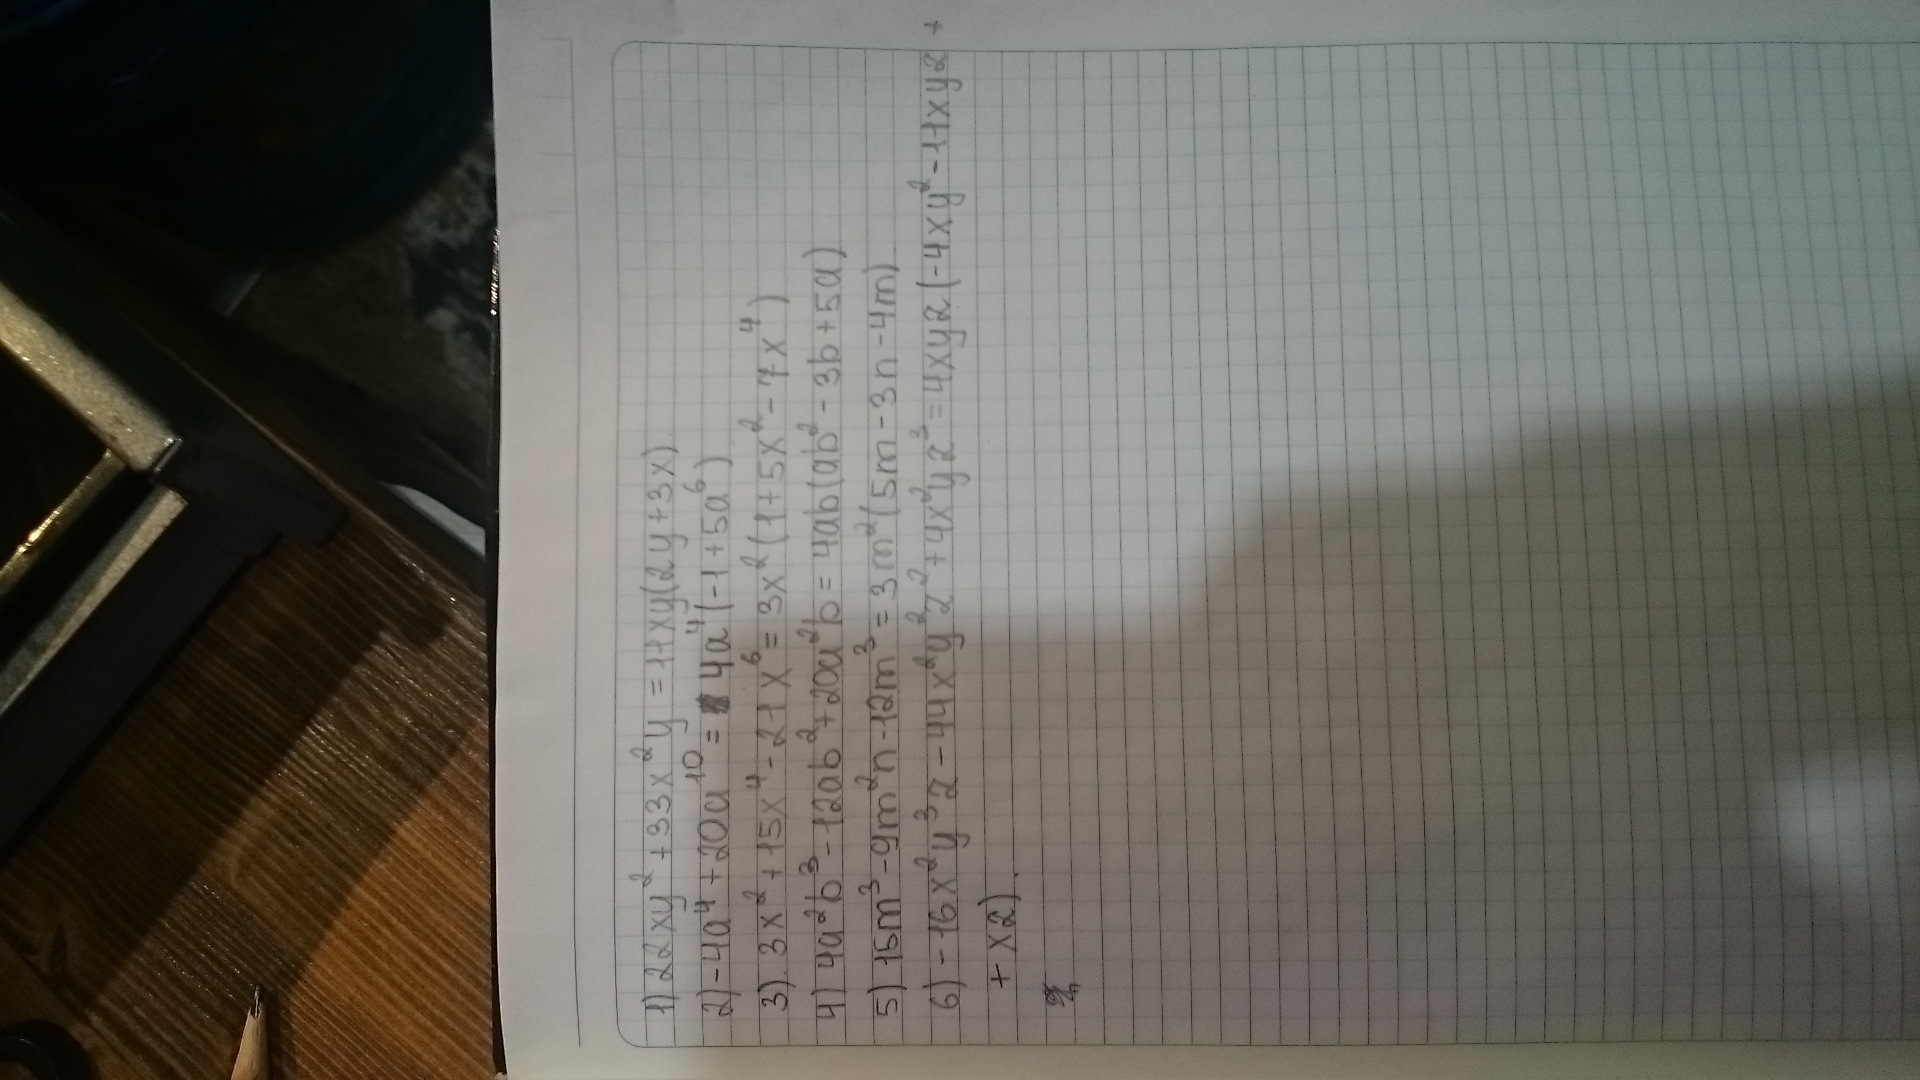 1) 22xy² + 33x²y = 11xy(2y+3x)
2) -4a⁴ + 20a¹⁰ = 4a⁴(-1+5a⁶)
3) 3x² + 15x⁴ - 21x⁶ = 3x²(1+5x² - 7x⁴)
4) 4a²b³ - 12ab² + 20a²b = 4ab(ab² - 3b + 5a)
5) 15m³ - 9m²n - 12m³ = 3m²(5m - 3n - 4m)
6) -16x²y³z - 44x²y²z² + 4x²yz³ = 4xyz(-4xy² - 11xyz +
+ xz).